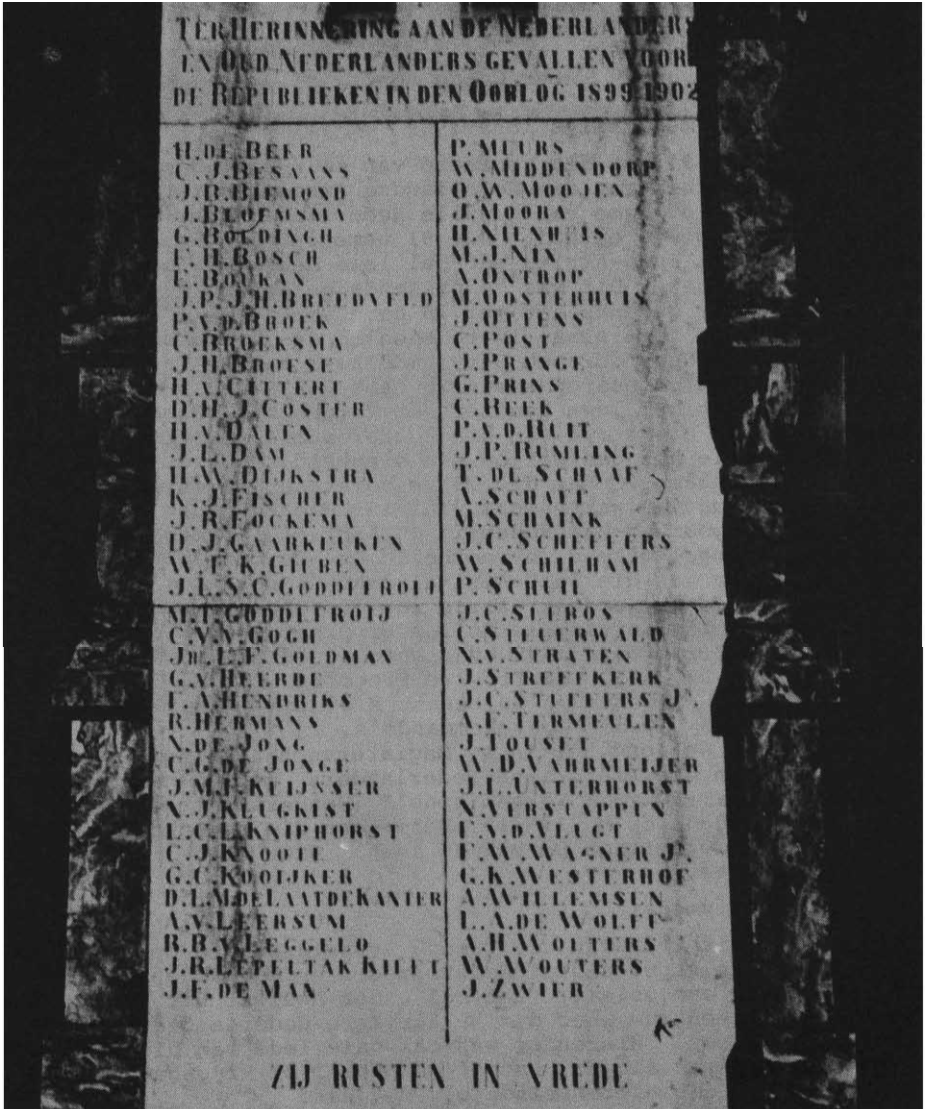 TER HERINNERING AAN DE NEDERLANDERS
EN OUD NEDERLANDERS GEVALLEN VOOR
DE REPUBLIEKEN IN DEN OORLOG 1899-1902
H. DE BEER
C. J. BESAANS
J. B. BIEMOND
J. BLOEMSMA
G. BOLDINGH
F. H. BOSCH
E. BOUKAN
J. P. J. H. BREEDVELD
P. V. D. BROEK
C. BROEKSMA
J. H. BROESE
H. V. CITTERT
D. H. J. COSTER
H. V. DALEN
J. L. DAM
H. W. DIJKSTRA
K. J. FISCHER
J. R. FOCKEMA
D. J. GAARKEUKEN
W. F. K. GIEBEN
J. L. S. C. GODDEFROIJ
M. T. GODDEFROIJ
C. V. V. GOGH
JR. L. F. GOLDMAN
G. V. HEERDE
F. A. HENDRIKS
R. HERMANS
N. DE JONG
C. G. DE JONGE
J. M. F. KEIJSSER
N. J. KLUGKIST
L. C. L. KNIPHORST
C. J. KNOOTE
G. C. KOOIJKER
D. L. M. DE LAAT DE KANTER
A. V. LEERSUM
R. B. V. LEGGELO
J. R. LEPELTAK KIEFT
J. F. DE MAN
P. MEURS
W. MIDDENDORP
O. W. MOOJEN
J. MOORA
H. NIENHUIS
M. J. NIX
A. ONTROP
M. OOSTERHUIS
J. OTTENS
C. POST
J. PRANGE
G. PRINS
C. REEK
P. V. D. RUIT
J. P. RUMLING
T. DE SCHAAF
A. SCHAFF
M. SCHAINK
J. C. SCHEFFERS
W. SCHILHAM
P. SCHUIL
J. C. SLEBOS
C. STEUERWALD
N. V. STRATEN
J. STREEFKERK
J. C. STUFFERS JR.
A. F. TERMEULEN
J. TOUSET
W. D. VAHRMEIJER
J. L. UNTERHORST
N. VERSTAPPEN
F. V. D. VLUGT
F. W. WAGNER JR.
G. K. WESTERHOF
A. WILLEMSEN
L. A. DE WOLFF
A. H. WOLTERS
W. WOUTERS
J. ZWIER
ZIJ RUSTEN IN VREDE